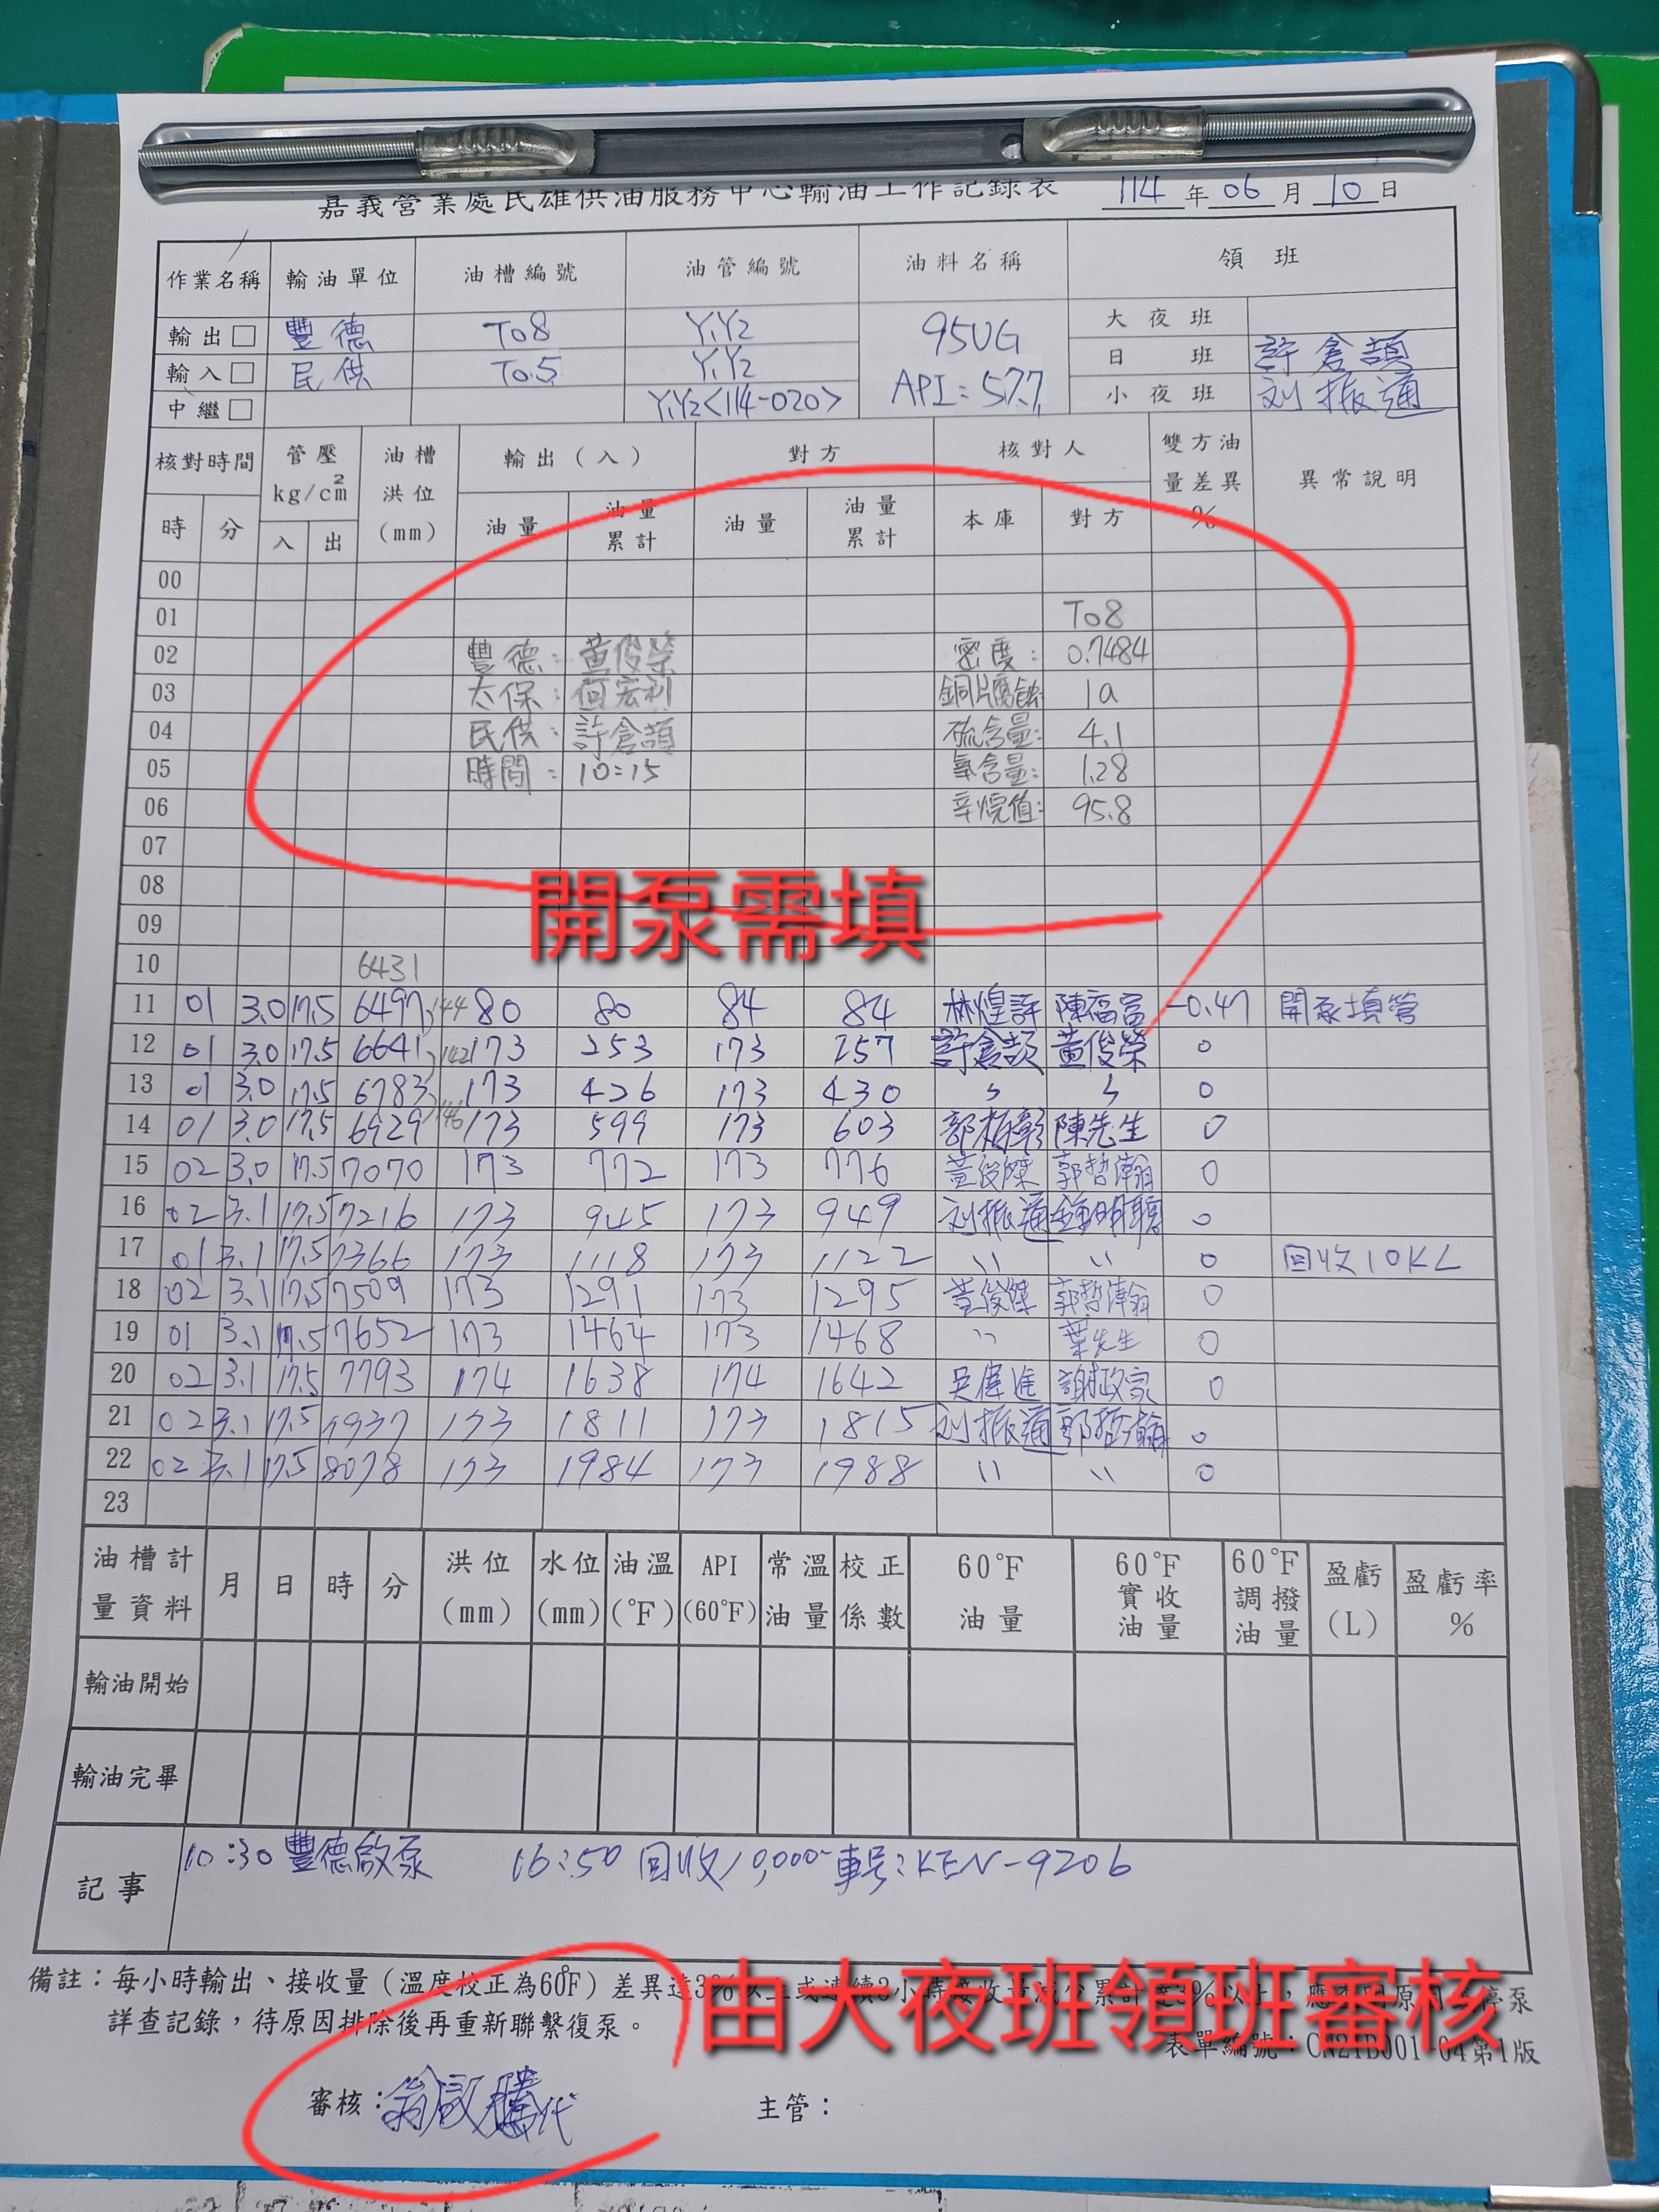 嘉義營業處民雄供油服務中心輸油工作記錄表 114年06月10日
作業名稱 輸油單位 油槽編號 油管編號 油料名稱 領班
輸出□ 豐德 To8 Y1Y2 95UG 大夜班
輸入□ 民供 To5 Y1Y2 API:57.7 日班 許倉頡
中繼□ Y1Y2<114-020> 小夜班 刘振通
核對時間 管壓 kg/cm2 油槽洪位(mm) 輸出(入) 對方 核對人 雙方油量差異% 異常說明
時 分 入 出 油量 油量累計 油量 油量累計 本庫 對方
00
01 To8
02 豐德: 黃俊榮 密度: 0.7484
03 太保: 何宏利 銅片腐蝕: 1a
04 民供: 許倉頡 硫含量: 4.1
05 時間: 10:15 氧含量: 1.28
06 辛烷值: 95.8
07
08
開泵需填
09
10 6431
11 01 3.0 17.5 6497 144 80 80 84 84 林煌許 陳福富 -0.47 開泵填管
12 01 3.0 17.5 6641 142 173 253 173 257 許倉頡 黃俊榮 0
13 01 3.0 17.5 6783 146 173 426 173 430 〃 〃 0
14 01 3.0 17.5 6929 173 599 173 603 郭栢彰 陳先生 0
15 02 3.0 17.5 7070 173 772 173 776 黃俊傑 郭哲瀚 0
16 02 3.1 17.5 7216 173 945 173 949 刘振通 鍾明聰 0
17 01 3.1 17.5 7366 173 1118 173 1122 〃 〃 0 回收10KL
18 02 3.1 17.5 7509 173 1291 173 1295 黃俊傑 郭哲瀚 0
19 01 3.1 17.5 7652 173 1464 173 1468 〃 葉先生 0
20 02 3.1 17.5 7793 174 1638 174 1642 吳偉進 謝政家 0
21 02 3.1 17.5 7937 173 1811 173 1815 刘振通 郭哲瀚 0
22 02 3.1 17.5 8078 173 1984 173 1988 〃 〃 0
23
油槽計量資料 月 日 時 分 洪位(mm) 水位(mm) 油溫(°F) API(60°F) 常溫油量 校正係數 60°F油量 60°F實收油量 60°F調撥油量 盈虧(L) 盈虧率%
輸油開始
輸油完畢
記事 10:30豐德啟泵 16:50回收10,000- 車号:KEN-9206
備註:每小時輸出、接收量(溫度校正為60°F)差異達3%以上或連續3小時接收量減少累計達3%以上,應
停泵
詳查記錄,待原因排除後再重新聯繫復泵。
由大夜班領班審核
表單編號:CN21B001-04第1版
審核: 代 主管: